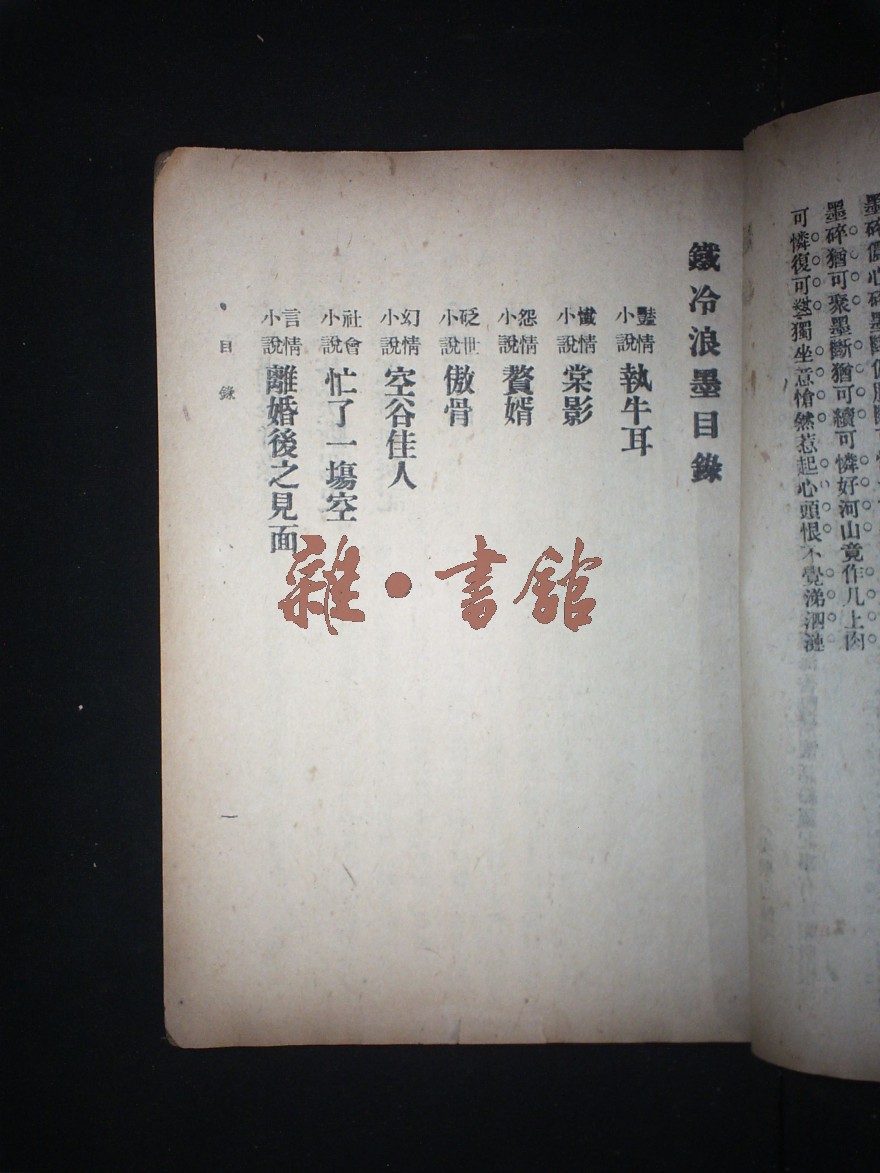 墨碎
可憐好河山竟作几上肉
墨碎猶可聚墨斷猶可續
可憐復可
獨坐意愴然惹起心頭恨不覺涕泗漣
鐵冷浪墨目錄
豔情小說 執牛耳
懺情小說 棠影
怨情小說 贅婿
砭世小說 傲骨
幻情小說 空谷佳人
社會小說 忙了一塲空
言情小說 離婚後之見面
目錄
一
雜·書館